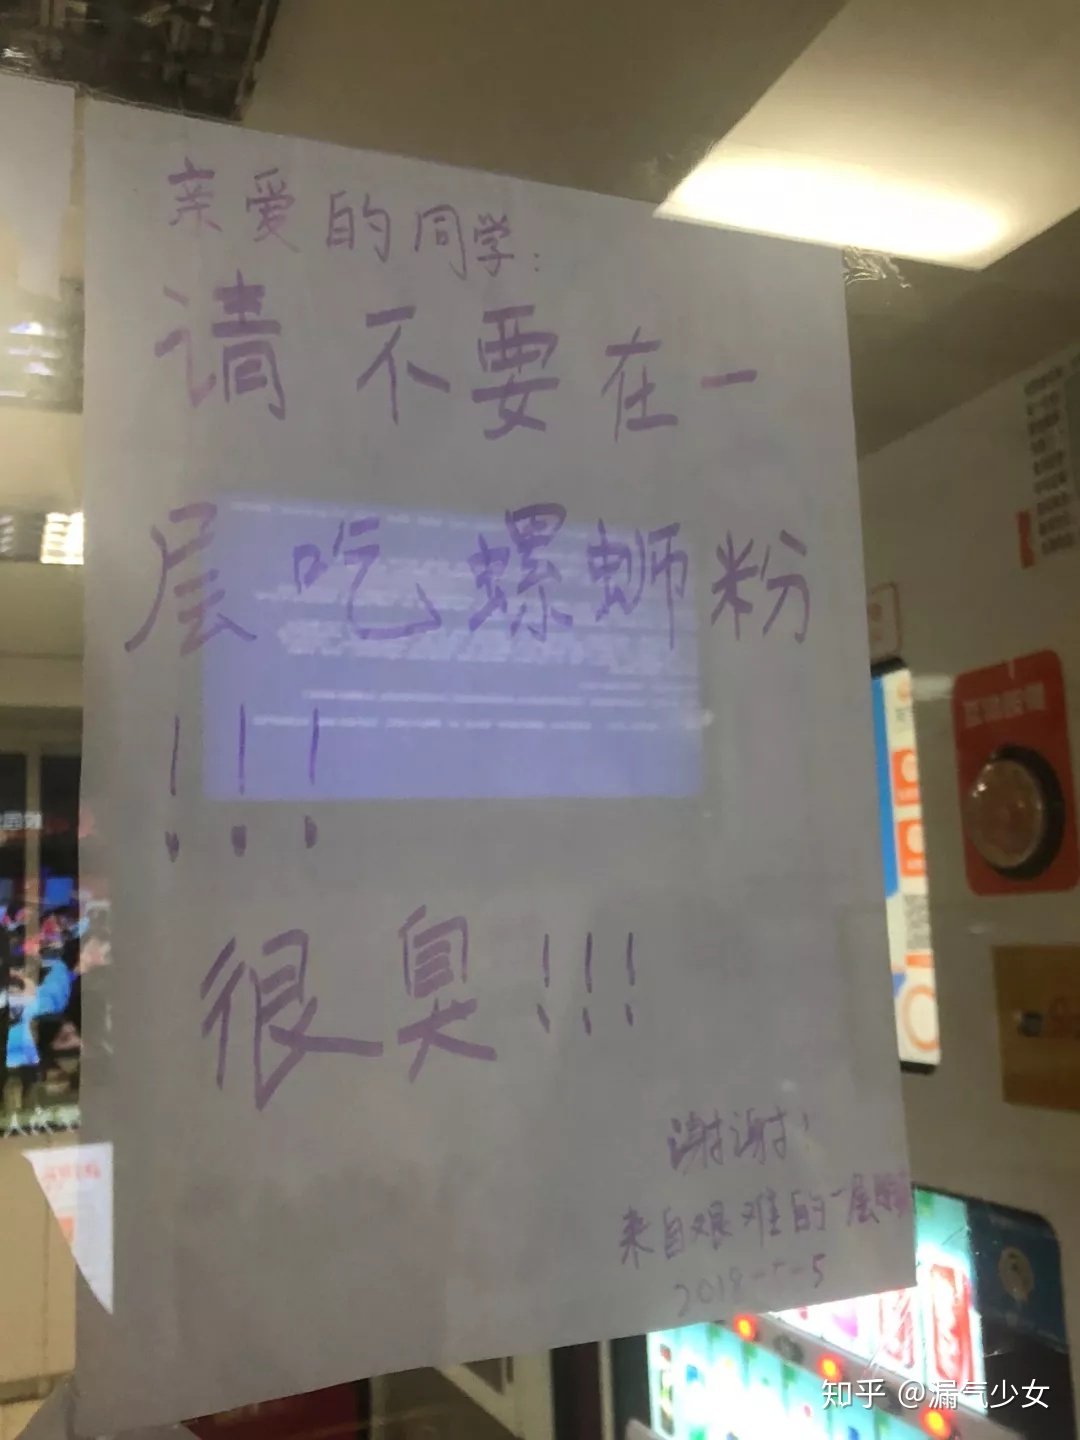 亲爱的同学:
请不要在一
层吃螺蛳粉
!!!
很臭!!!
谢谢!
来自艰难的一层
知乎 @漏气少女